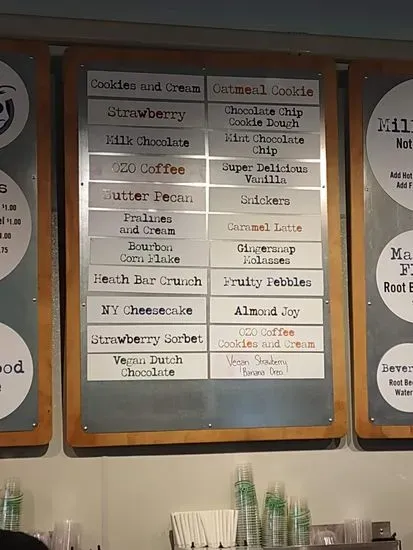 Cookies and Cream
Strawberry
Milk Chocolate
OZO Coffee
Butter Pecan
Pralines
and Cream
Bourbon
Corn Flake
Heath Bar Crunch
NY Cheesecake
Strawberry Sorbet
Vegan Dutch
Chocolate
Oatmeal Cookie
Chocolate Chip
Cookie Dough
Mint Chocolate
Chip
Super Delicious
Vanilla
Snickers
Caramel Latte
Gingersnap
Molasses
Fruity Pebbles
Almond Joy
OZO Coffee
Cookies and Cream
Vegan Strawberry
Banana Oreo
$1.00
$1.00
Not
Add Hot
Add F
Root B
Root Bee
Water